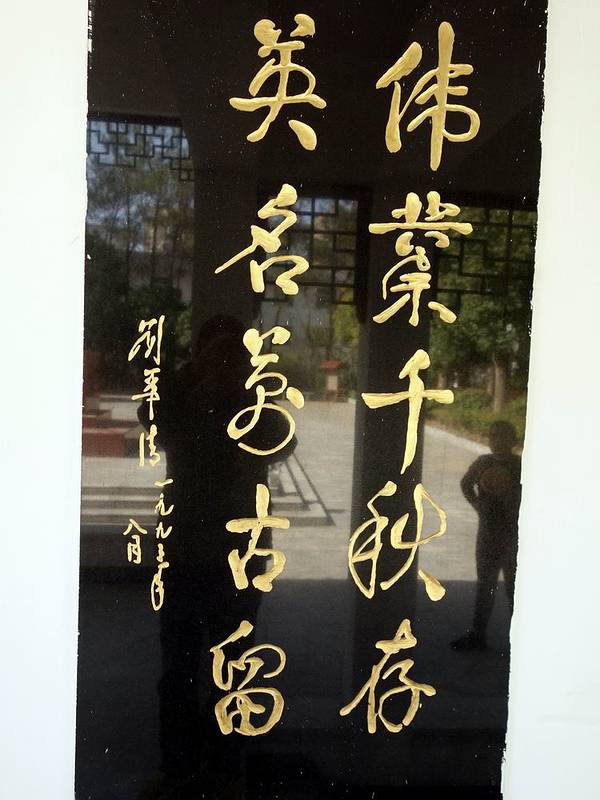 伟業千秋存
英名萬古留
劉華清一九九三年
八月